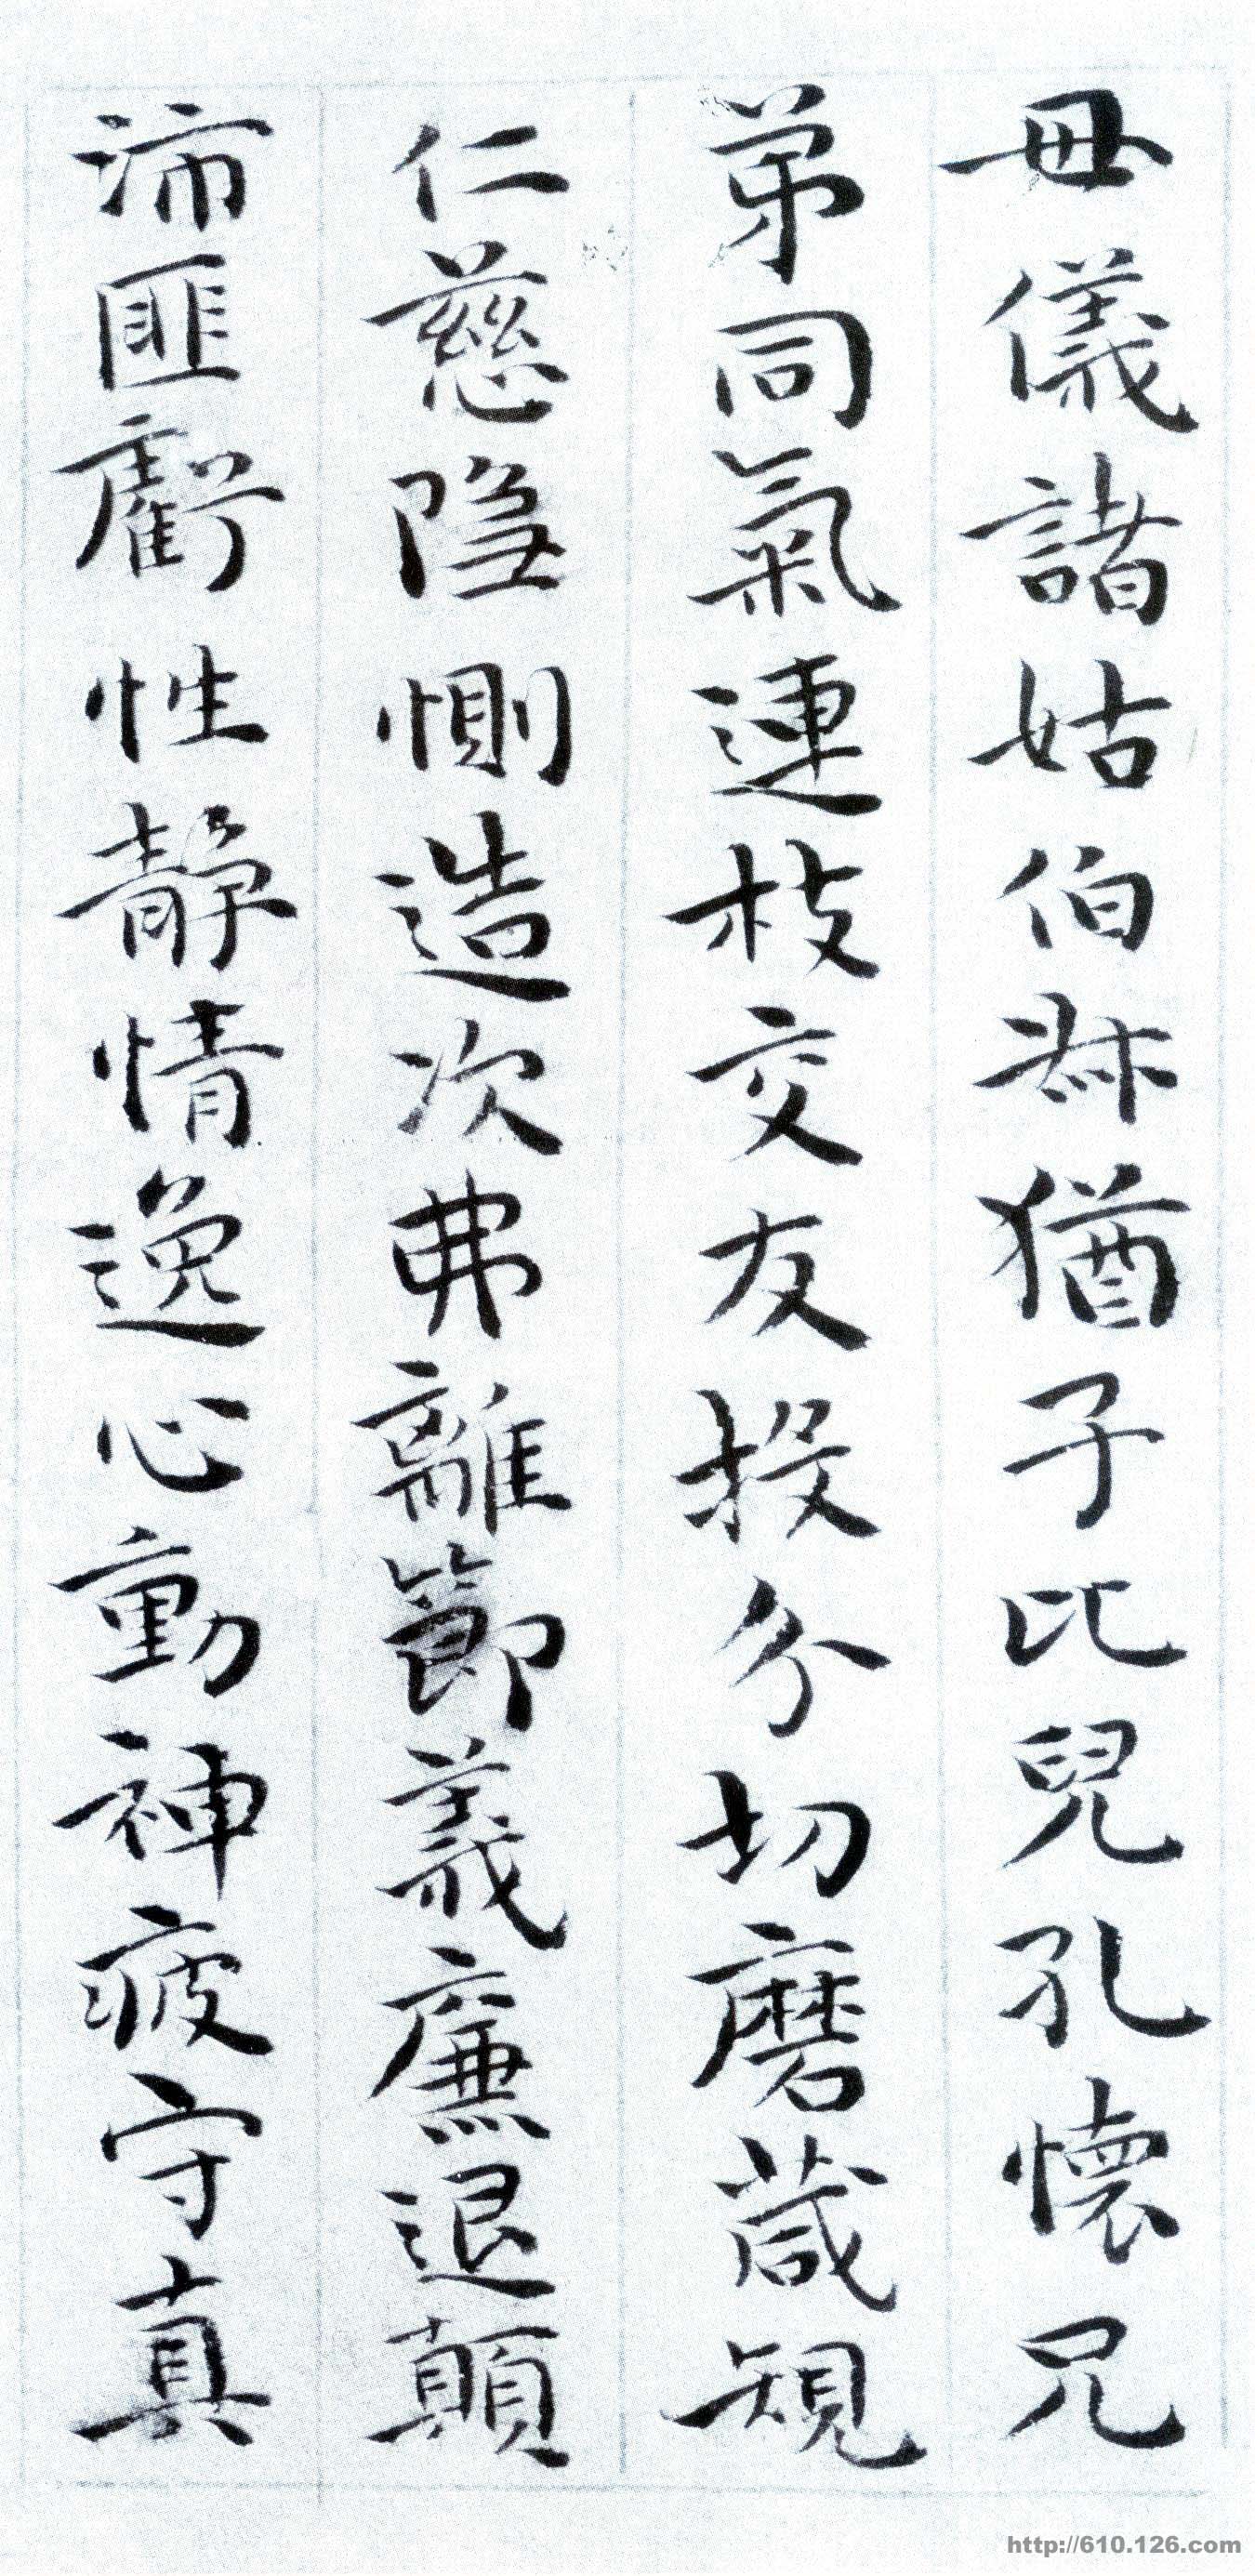 母儀諸姑伯叔猶子比兒孔懷兄
弟同氣連枝交友投分切磨葴規
仁慈隐惻造次弗離節義廉退顛
沛匪虧性静情逸心動神疲守真
http://610.126.com